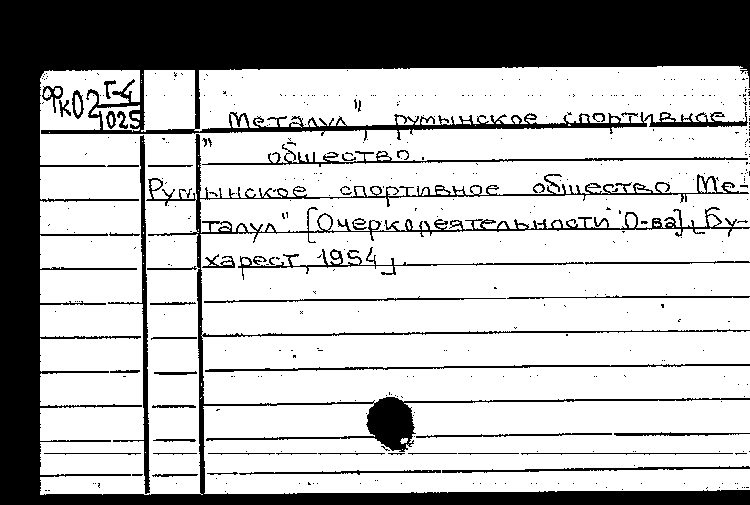 ФК02 Г-4
1025
"Металул", румынское спортивное
общество.
Румынское спортивное общество „Ме-
талул" [Очерк деятельности О-ва]. [Бу-
харест, 1954].